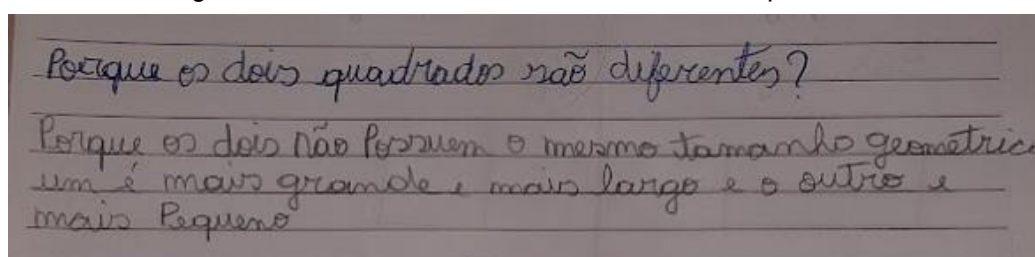 Porque os dois quadrados são diferentes?
Porque os dois não Possuem o mesmo tamanho geometric
um é mais grande e mais largo e o outro e
mais Pequeno